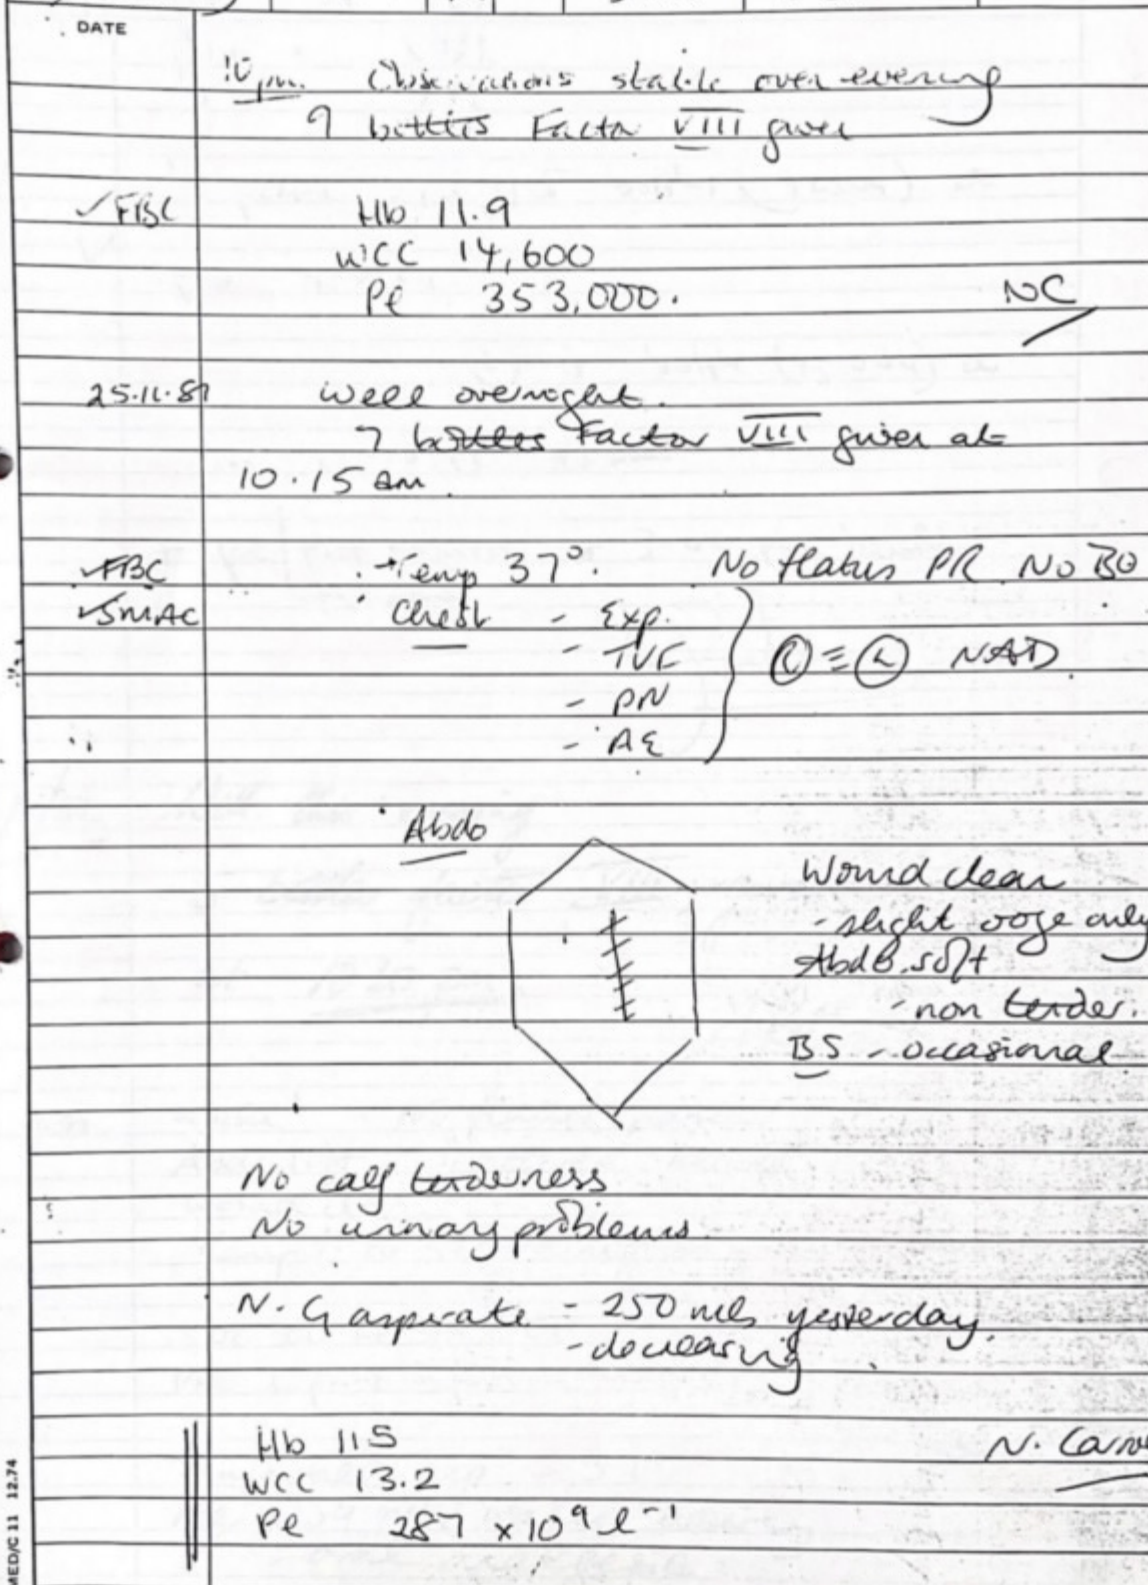 DATE
10pm. Observations stable over evening
9 bottles Factor VIII given
✓FBC Hb 11.9
WCC 14,600
Pl 353,000.
NC
25.11.81 Well overnight.
7 bottles Factor VIII given at
10.15 am.
✓FBC Temp 37°. No flatus PR No BO
✓SMAC Chest - Exp.
- TVF Ⓡ ≡ Ⓛ NAD
- PN
- AE
Abdo
Wound clean
- slight ooze only
Abdo. soft
- non tender.
BS - occasional
No calf tenderness
No urinary problems.
N.G aspirate - 250 mls yesterday.
- decreasing
Hb 11.5 N.
WCC 13.2
Pl 287 x 10⁹ l⁻¹
MED/C 11 12.74